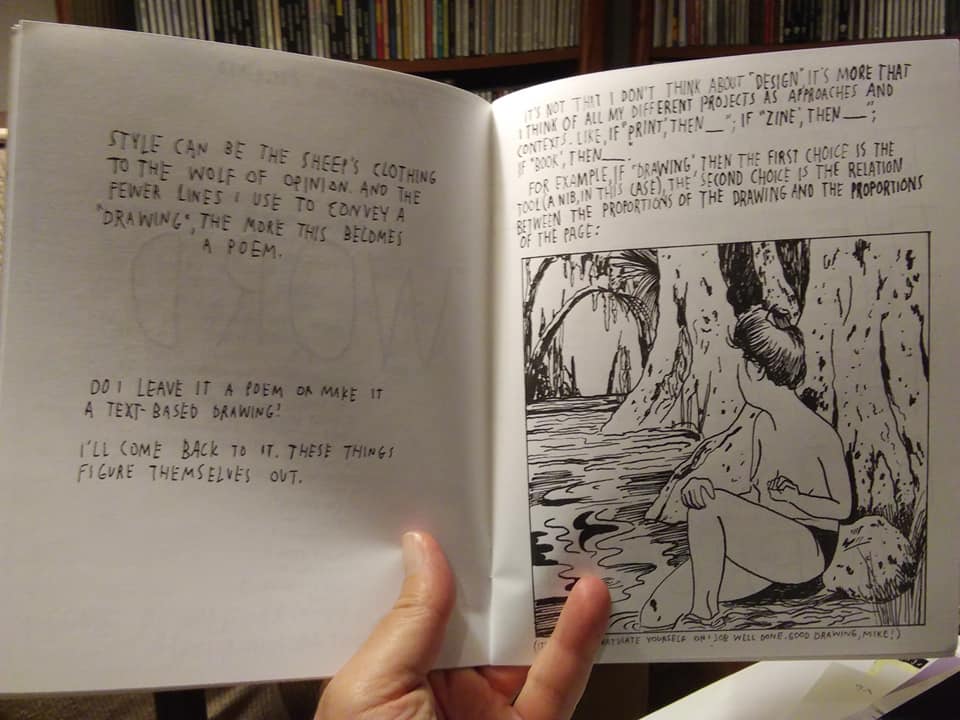 STYLE CAN BE THE SHEEP'S CLOTHING
TO THE WOLF OF OPINION. AND THE
FEWER LINES I USE TO CONVEY A
"DRAWING", THE MORE THIS BECOMES
A POEM.
DO I LEAVE IT A POEM OR MAKE IT
A TEXT-BASED DRAWING?
I'LL COME BACK TO IT. THESE THINGS
FIGURE THEMSELVES OUT.
IT'S NOT THAT I DON'T THINK ABOUT "DESIGN", IT'S MORE THAT
I THINK OF ALL MY DIFFERENT PROJECTS AS APPROACHES AND
CONTEXTS. LIKE, IF "PRINT", THEN __"; IF "ZINE", THEN __";
IF "BOOK", THEN __.
FOR EXAMPLE, IF "DRAWING," THEN THE FIRST CHOICE IS THE
TOOL (A NIB, IN THIS CASE), THE SECOND CHOICE IS THE RELATION
BETWEEN THE PROPORTIONS OF THE DRAWING AND THE PROPORTIONS
OF THE PAGE:
YOURSELF ON: JOB WELL DONE. GOOD DRAWING, MIKE!)
WORD